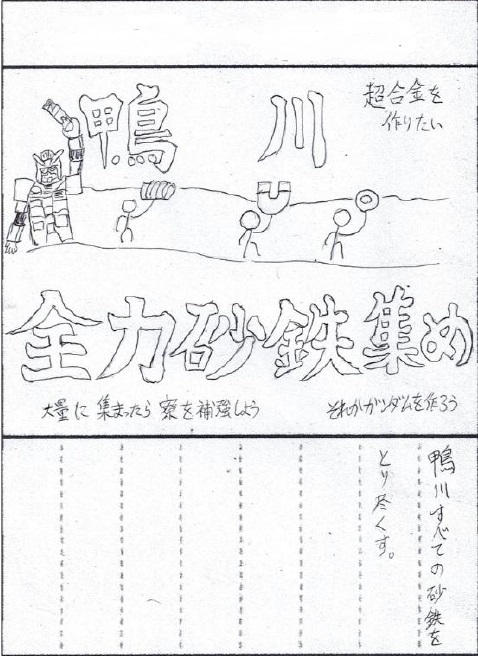 鴨川
超合金を
作りたい
全力砂鉄集め
大量に集まったら寮を補強しよう
それかガンダムを作ろう
鴨川すべての砂鉄を
とり尽くす。